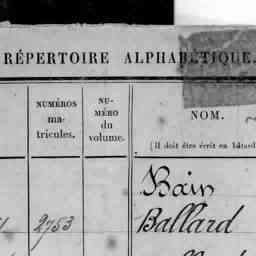 RÉPERTOIRE ALPHABÉTIQUE.
NUMÉROS
ma-
tricules.
NU-
MÉRO
du
volume.
NOM.
(Il doit être écrit en bâtard
Bain
2753 Ballard